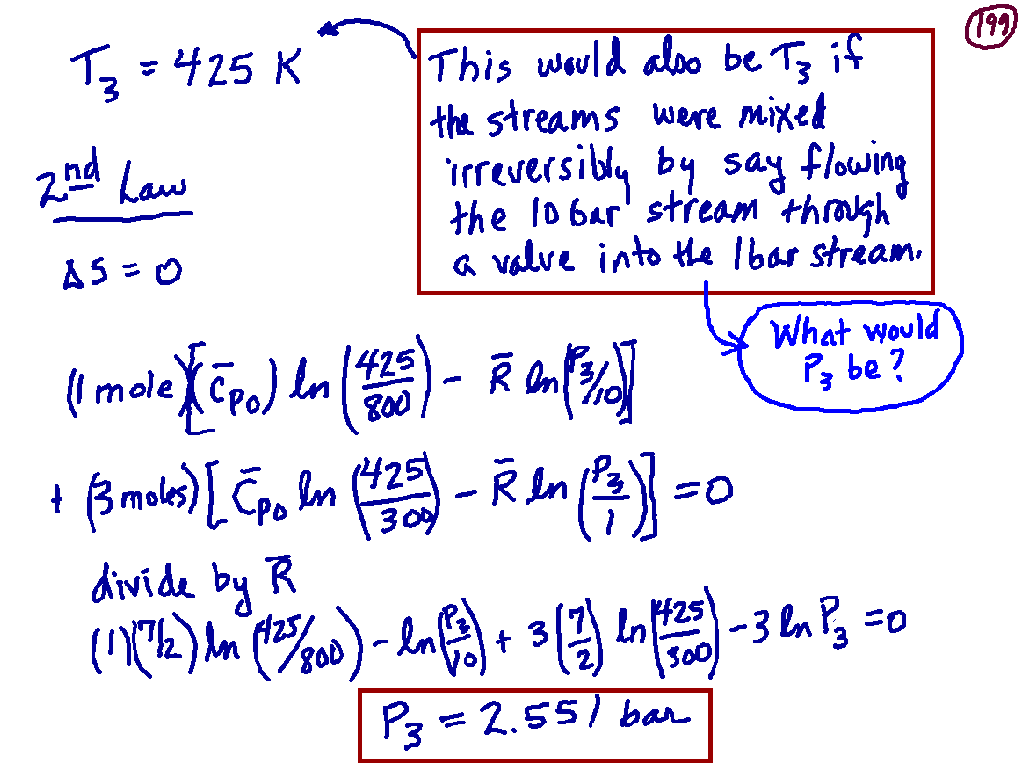 199
T₃ = 425 K
This would also be T₃ if
the streams were mixed
irreversibly by say flowing
the 10 bar stream through
a valve into the 1 bar stream.
2nd Law
ΔS = 0
What would
P₃ be?
(1 mole)[(C̄po) ln (425/800) - R̄ ln(P₃/10)]
+ (3 moles)[C̄po ln (425/300) - R̄ ln (P₃/1)] = 0
divide by R̄
(1)(7/2) ln (425/800) - ln(P₃/10) + 3(7/2) ln(425/300) - 3 ln P₃ = 0
P₃ = 2.551 bar